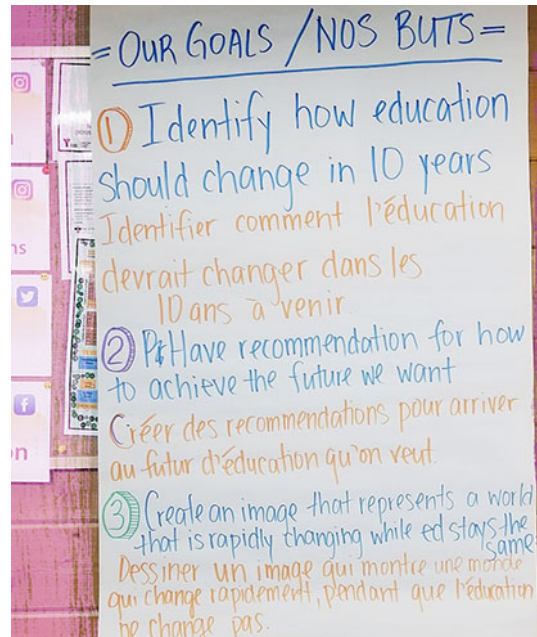 = OUR GOALS / NOS BUTS =
① Identify how education
should change in 10 years
Identifier comment l'éducation
devrait changer dans les
10 ans à venir
② Have recommendation for how
to achieve the future we want
Créer des recommendations pour arriver
au futur d'éducation qu'on veut.
③ Create an image that represents a world
that is rapidly changing while ed stays the
same
Dessiner un image qui montre une monde
qui change rapidement, pendant que l'éducation
ne change pas.
ns
on